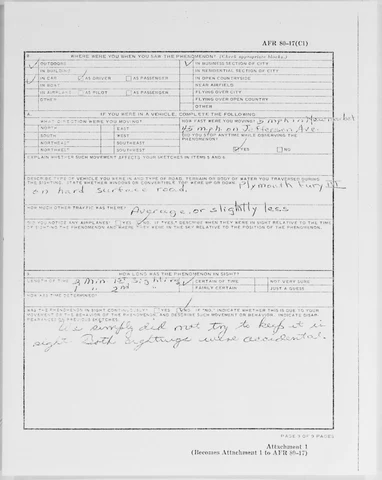 AFR 80-17(C1)
WHERE WERE YOU WHEN YOU SAW THE PHENOMENON? (Check appropriate blocks)
OUTDOORS
IN BUSINESS SECTION OF CITY
IN BUILDING
IN RESIDENTIAL SECTION OF CITY
IN CAR AS DRIVER AS PASSENGER
IN OPEN COUNTRYSIDE
IN BOAT
NEAR AIRFIELD
IN AIRPLANE AS PILOT AS PASSENGER
FLYING OVER CITY
OTHER
FLYING OVER OPEN COUNTRY
OTHER
IF YOU WERE IN A VEHICLE, COMPLETE THE FOLLOWING
WHAT DIRECTION WERE YOU MOVING?
HOW FAST WERE YOU MOVING? 5 mph in
NORTH EAST
45 mph on Jefferson Ave.
SOUTH WEST
DID YOU STOP ANYTIME WHILE OBSERVING THE PHENOMENON?
NORTHEAST SOUTHEAST
NORTHWEST SOUTHWEST
YES NO
EXPLAIN WHETHER SUCH MOVEMENT AFFECTS YOUR SKETCHES IN ITEMS
DESCRIBE TYPE OF VEHICLE YOU WERE IN AND TYPE OF ROAD, TERRAIN OR BODY OF WATER YOU TRAVERSED DURING
THE SIGHTING. STATE WHETHER WINDOWS OR CONVERTIBLE TOP WERE UP OR DOWN. Plymouth Fury III
on hard surface road.
HOW MUCH OTHER TRAFFIC WAS THERE?
Average or slightly less
DID YOU NOTICE ANY AIRPLANES? YES NO IF "YES," DESCRIBE WHEN THEY WERE IN SIGHT RELATIVE TO THE TIME
OF SIGHTING THE PHENOMENON AND WHERE THEY WERE IN THE SKY RELATIVE TO THE POSITION OF THE PHENOMENON.
HOW LONG WAS THE PHENOMENON IN SIGHT?
LENGTH OF TIME 2 Min 1st Sighting
CERTAIN OF TIME NOT VERY SURE
1 " 2nd
FAIRLY CERTAIN JUST A GUESS
HOW WAS TIME DETERMINED?
WAS THE PHENOMENON IN SIGHT CONTINUOUSLY? YES NO. IF "NO," INDICATE WHETHER THIS IS DUE TO YOUR
MOVEMENT OR THE BEHAVIOR OF THE PHENOMENON AND DESCRIBE SUCH MOVEMENT OR BEHAVIOR. INDICATE DISAP-
PEARANCES ON PREVIOUS SKETCHES.
We simply did not try to keep it in
sight. Both sightings were accidental.
PAGE 3 OF 9 PAGES
Attachment 1
(Becomes Attachment 1 to AFR 80-17)